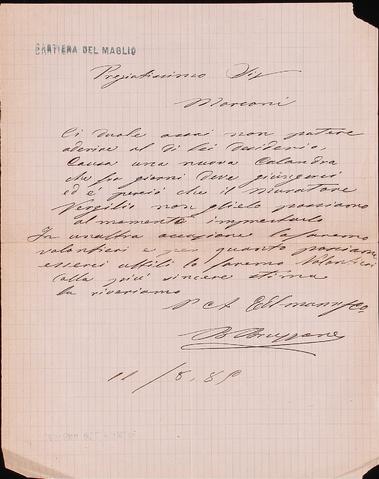 CARTIERA DEL MAGLIO
Pregiatissimo Sig
Marconi
Ci duole assai non potere
aderire al di lei desiderio,
causa una nuova Calandra
che fra giorni deve giungerci
ed è perciò che il Muratore
Vergilio non glielo possiamo
al momento
In un'altra occasione lo faremo
volentieri e per quanto possiamo
esserci utili lo faremo volentieri
Colla più sincera stima
la riveriamo